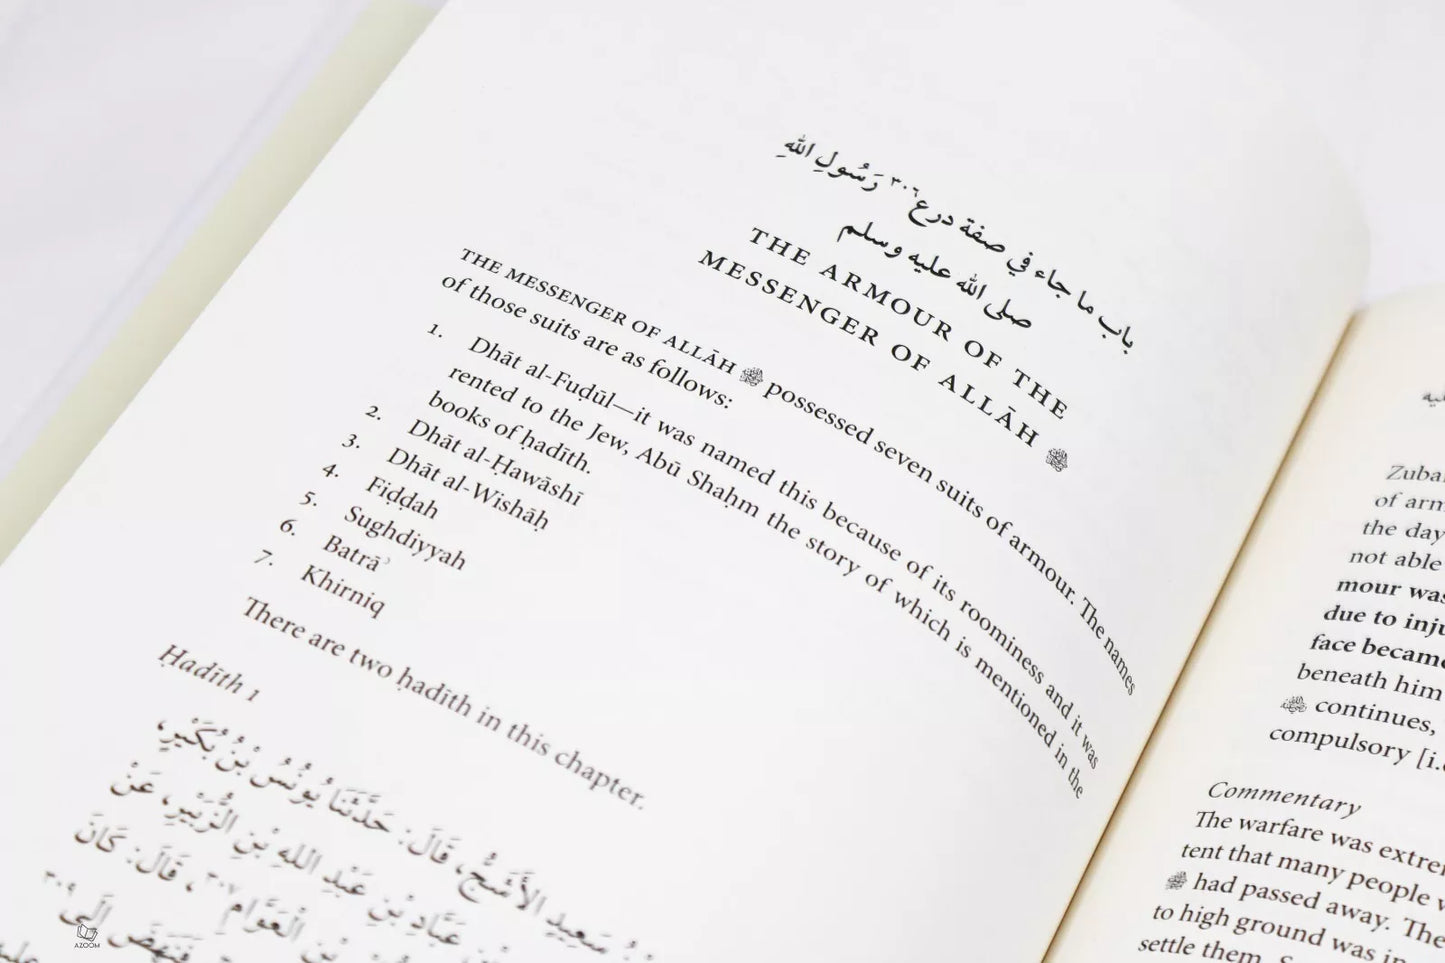 باب ما جاء في صفة درع٣٠٦ رَسُولِ اللهِ
صلى الله عليه وسلم
THE ARMOUR OF THE
MESSENGER OF ALLĀH ﷺ
THE MESSENGER OF ALLĀH ﷺ possessed seven suits of armour. The names
of those suits are as follows:
1. Dhāt al-Fuḍūl—it was named this because of its roominess and it was
rented to the Jew, Abū Shaḥm the story of which is mentioned in the
books of ḥadīth.
2. Dhāt al-Ḥawāshī
3. Dhāt al-Wishāḥ
4. Fiḍḍah
5. Sughdiyyah
6. Batrāʾ
7. Khirniq
There are two ḥadīth in this chapter.
Ḥadīth 1
سَعِيدٍ الأَشَجُّ، قَالَ: حَدَّثَنَا يُونُسُ بْنُ بُكَيْرٍ،
عَبَّادِ بْنِ عَبْدِ اللهِ بْنِ الزُّبَيْرِ، عَنْ
بْنِ الْعَوَّامِ٣٠٧، قَالَ: كَانَ
فَنَهَضَ إِلَى ٣٠٩
AZOOM
of arm
the day
not able
mour was
due to inju
face became
beneath him
ﷺ continues,
compulsory [i.e
Commentary
The warfare was extrem
tent that many people w
ﷺ had passed away. The
to high ground was in
settle them. S